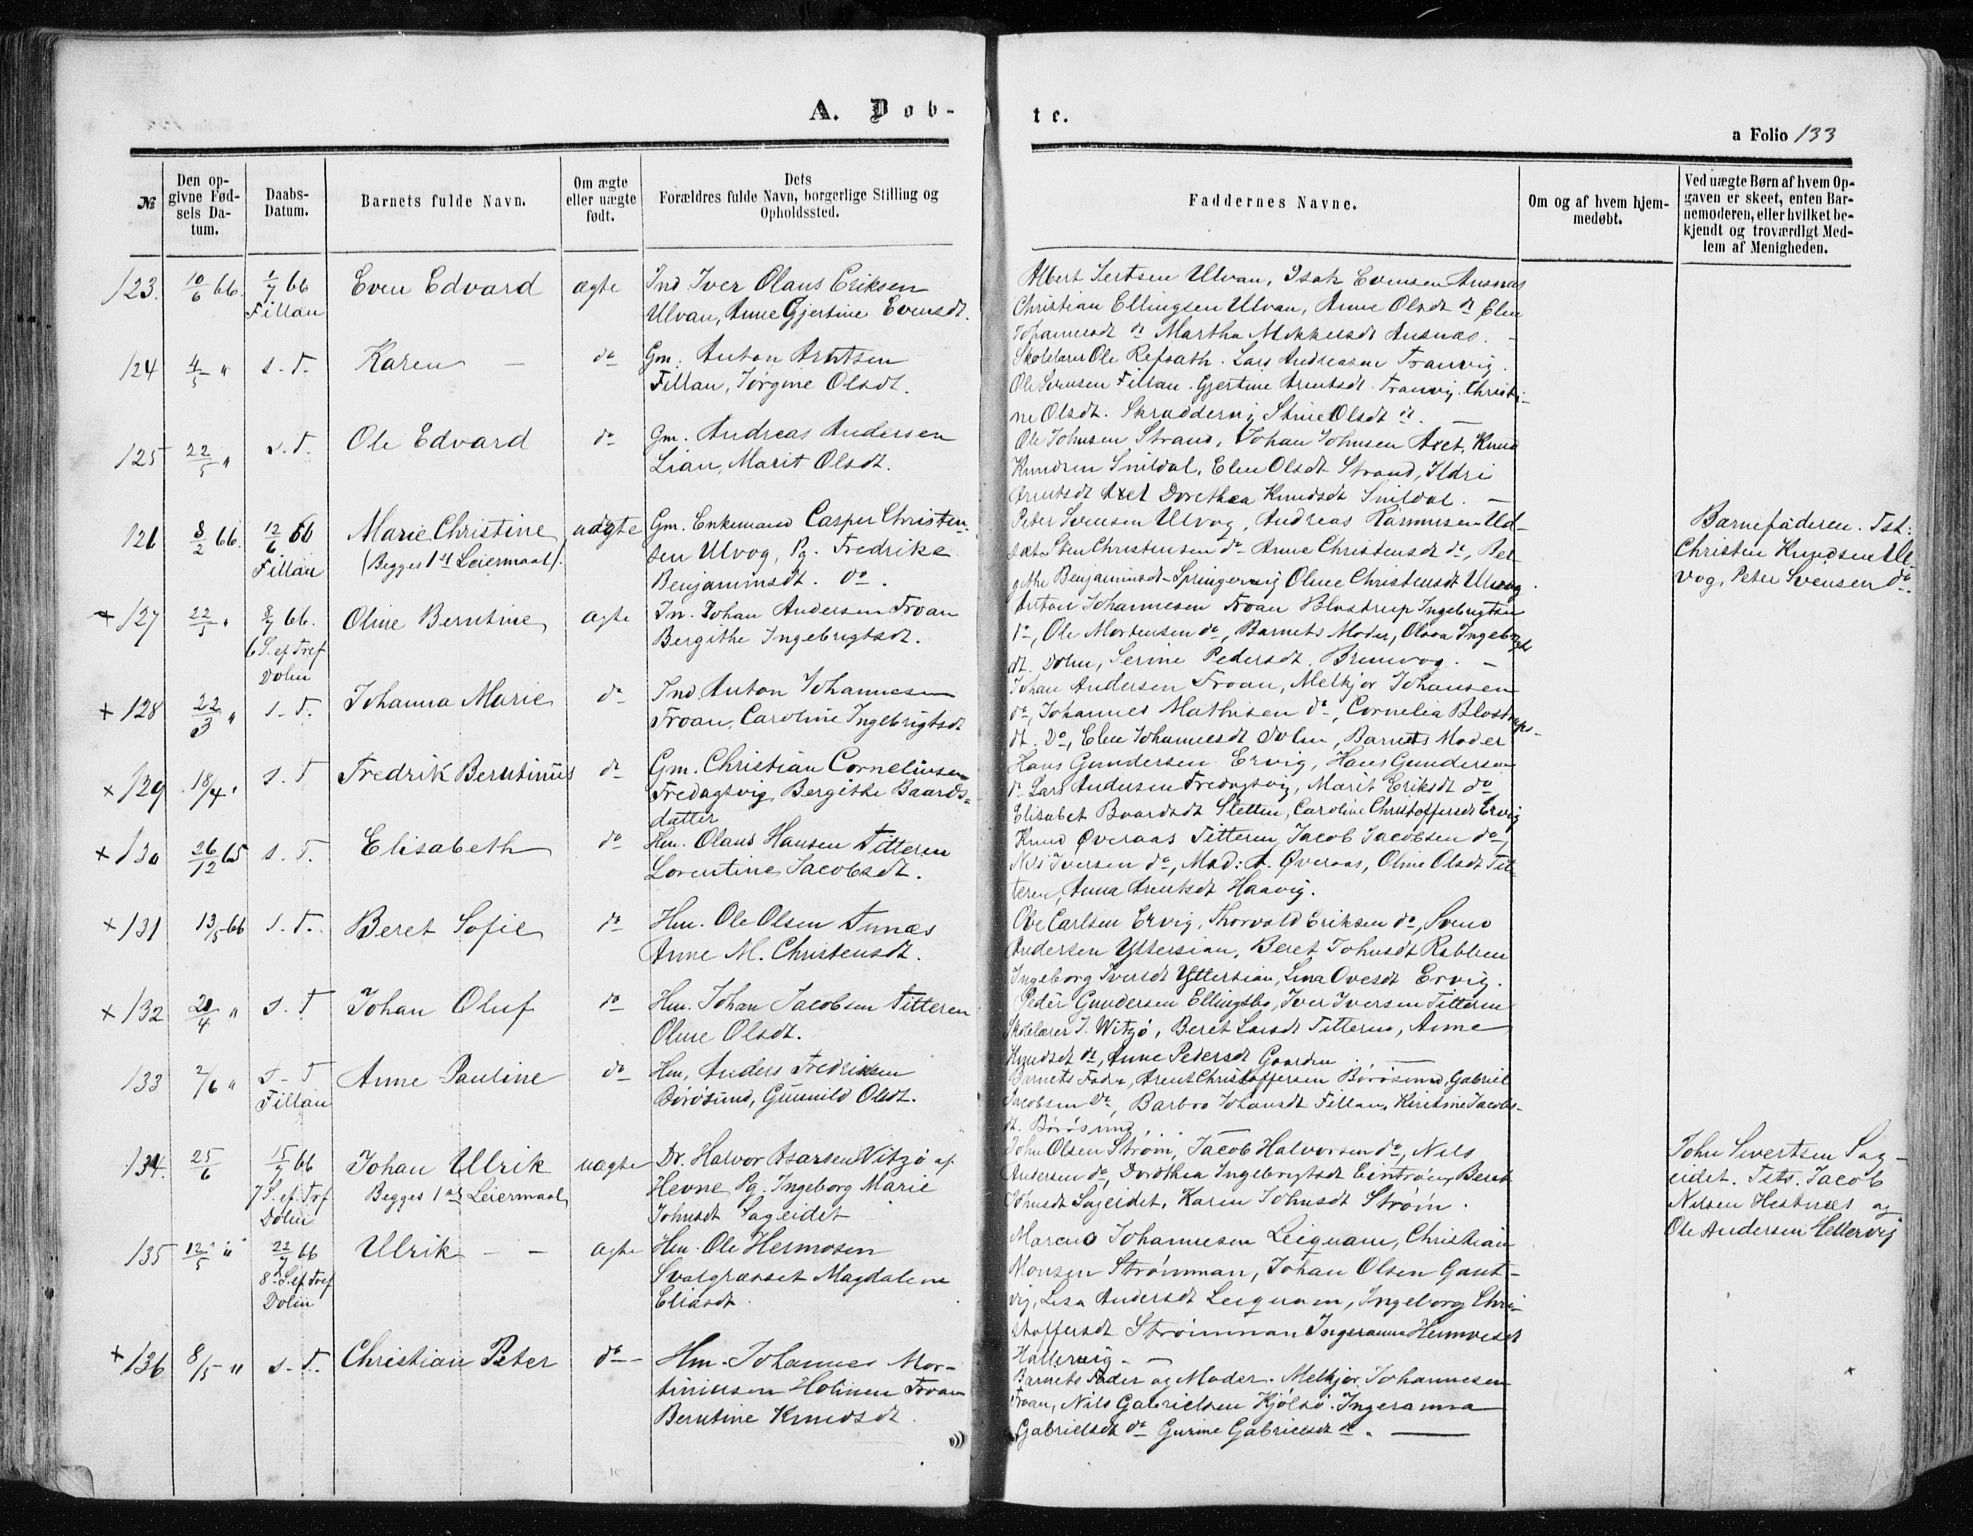 A. Døb-
te.
a Folio 133
№
Den op-
givne Fød-
sels Da-
tum.
Daabs-
Datum.
Barnets fulde Navn.
Om ægte
eller uægte
født.
Dets
Forældres fulde Navn, borgerlige Stilling og
Opholdssted.
Faddernes Navne.
Om og af hvem hjem-
medøbt.
Ved uægte Børn af hvem Op-
gaven er skeet, enten Bar-
nemoderen, eller hvilket be-
kjendt og troværdigt Med-
lem af Menigheden.
123. 10/6 66. 1/7 66 Even Edvard ægte Ind Iver Olaus Eriksen
Fillan Ulvan, Anne Gjertine Evensdt.
Albert Sertsen Ulvan, Isak Evensen Ausnæs
Christian Ellingsen Ulvan, Anne Olsdt do Elen
Johannesdt do Martha Mikkelsdt Ausnæs. -
124 4/5 " s. T. Karen - do Gm. Anton Arntsen
Fillan, Jørgine Olsdt.
Skolelærer Ole Refsath. Lars Andreasen Tranvig.
Ole Svensen Fillan. Gjertine Arntsdt. Tranvig. Christi-
ne Olsdt. Stine Olsdt do. -
125 22/5 " s. T. Ole Edvard do Gm. Andreas Andersen
Lian, Marit Olsdt.
Ole Johnsen Strand, Johan Johnsen Axet, Knud
Knudsen Snildal, Elen Olsdt Strand, Ildri
Arntsdt Axet Dorethea Knudsdt Snildal. -
126 8/2 66. 12/6 66 Marie Christine uægte Gm. Enkemand Casper Christen-
Fillan (Begges 1st Leiermaal). sen Ulvog, Pg. Fredrike
Benjaminsdt. do.
Peter Svensen Ulvog, Andreas Rasmusen Uld-
sæt Sten Christensen do Anne Christensdt do, Ber-
githe Benjaminsdt Springervig Oline Christensdt Ulvog
Barnefaderen. Tst:
Christen Knudsen Ul-
vog, Peter Svensen do.
+ 127 22/5 " 8/7 66. Oline Berntine ægte In. Johan Andersen Froan
6 S. ef Tref Bergithe Ingebrigtsdt.
Dolm
Anton Johannesen Froan Blostrup Ingebrigtsen
do, Ole Mortensen do, Barnets Moder, Olava Ingebrigts
dt. Dolm, Serine Pedersdt. Brunvog. -
+ 128 22/3 " s. T. Johanna Marie do Ind Anton Johannesen
Froan, Caroline Ingebrigtsdt
Johan Andersen Froan, Melkjor Johansen
do, Johannes Mathisen do, Cornelia Blostrups-
dt. Do, Elen Johannesdt Dolm, Barnets Moder
+ 129 18/4 " s. T Fredrik Berntinus do Gm. Christian Corneliusen
Fredagsvig Bergithe Baards-
datter
Hans Gundersen Ervig, Hans Gundersen
do Lars Andersen Fredagsvig, Marit Eriksdt do,
Elisabet Baardsdt Sletten, Caroline Christoffersdt Ervig
+ 130 26/12 65 s. T. Elisabeth do Hm. Olaus Hansen Titteren
Lorentine Jacobsdt.
Knud Øveraas Titteren, Jacob Jacobsen do,
Nils Iversen do, Mad: A. Øveraas, Oline Olsdt Tit-
teren, Anna Arentsdt Haavig.
+ 131 13/5 66 s. T. Beret Sofie do Hm. Ole Olsen Tunæs
Anne M. Christensdt.
Ove Carlsen Ervig, Thorvald Eriksen do, Svend
Andersen Yttersian, Beret Johnsdt Rabben
Ingeborg Iversdt Yttersian, Lina Ovesdt Ervig.
+ 132 20/4 " s. T Johan Oluf do Hm. Johan Jacobsen Titteren
Oline Olsdt.
Peder Gundersen Ellingsbo, Iver Iversen Titteren
Skolelærer J. Witzø, Beret Larsdt Titteren, Anne
Knudsdt do, Anne Pedersdt Gaarden
133 2/6 " s. T Anne Pauline do Hm. Anders Fredriksen
Fillan Børøsund, Gunnild Olsdt.
Barnets Fader, Arent Christoffersen Børøsund, Gabriel
Jacobsen do, Barbro Johansdt Fillan, Kirstine Jacobs-
dt. Børøsund
134. 25/6 15/7 66 Johan Ulrik uægte Dr. Halvor Asarsen Vitzø af
7 S. ef Tref Begges 1ste Leiermaal Hevne Pg. Ingeborg Marie
Dolm Johnsdt Sageidet
John Olsen Strøm, Jacob Halvorsen do, Nils
Andersen do, Dorothea Ingebrigtsdt Beret
Johnsdt Sageidet, Karen Johnsdt Strøm.
John Sivertsen Sag-
eidet. Tsts. Jacob
Nilsen Hestnæs og
Ole Andersen Hellervig
135 12/5 " 22/7 66 Ulrik - - ægte Hm. Ole Hermosen
8de S. ef Tref Svalgræsset Magdalena
Dolm Eliasdt.
Marcus Johannesen Leiqnam, Christian
Monsen Strømman, Johan Olsen Gaut-
vig, Lisa Andersdt Leiqnam, Ingeborg Chri-
stoffersdt Strømman Ingeranna
Hallervig. -
+ 136 8/5 " s. T. Christian Peter do - Hm. Johannes Mor-
tiniusen Holmen Froan
Berntine Knudsdt.
Barnets Fader og Moder. Melkjor Johannesen
Froan, Nils Gabrielsen Kjølsø. Ingeranna
Gabrielsdt do Gurine Gabrielsdt do.